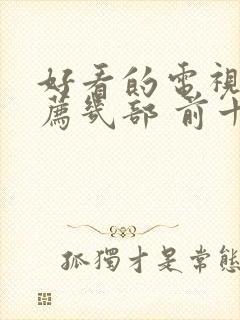 好看的電視
薦幾部 前十
孤獨才是常態